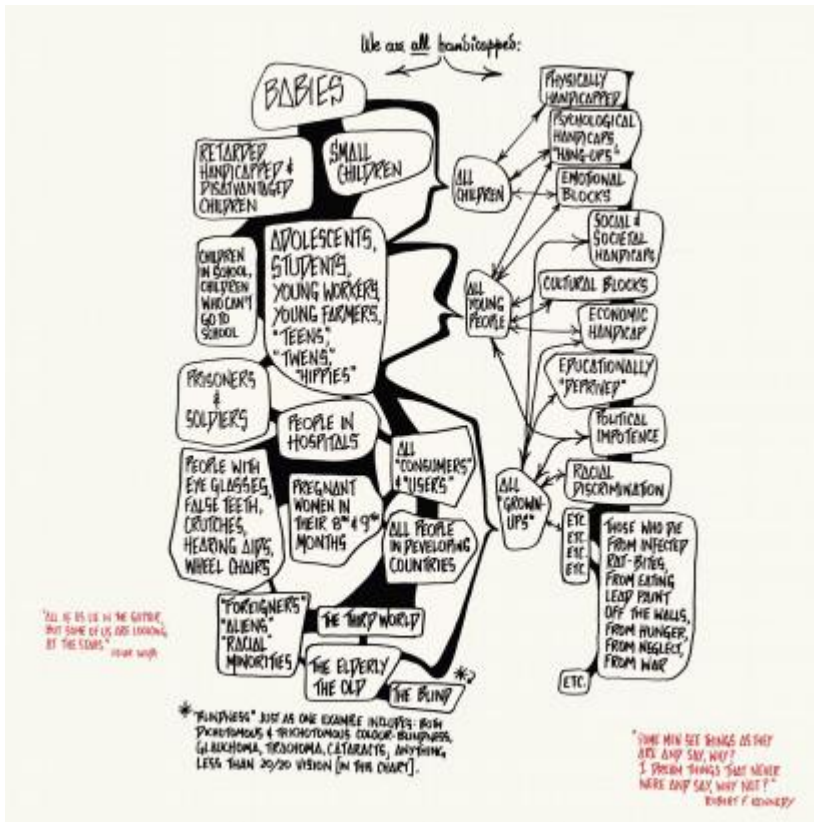 We are all handicapped:
BABIES
RETARDED,
HANDICAPPED &
DISATVANTAGED
CHILDREN
SMALL
CHILDREN
CHILDREN
IN SCHOOL,
CHILDREN
WHO CAN'T
GO TO
SCHOOL
ADOLESCENTS,
STUDENTS,
YOUNG WORKERS,
YOUNG FARMERS,
"TEENS",
"TWENS",
"HIPPIES"
PRISONERS
&
SOLDIERS
PEOPLE IN
HOSPITALS
PEOPLE WITH
EYE GLASSES,
FALSE TEETH,
CRUTCHES,
HEARING AIDS,
WHEEL CHAIRS
PREGNANT
WOMEN IN
THEIR 8TH & 9TH
MONTHS
ALL
"CONSUMERS"
& "USERS"
ALL PEOPLE
IN DEVELOPING
COUNTRIES
"FOREIGNERS"
"ALIENS"
"RACIAL
MINORITIES
THE THIRD WORLD
THE ELDERLY
THE OLD
THE BLIND
ALL
CHILDREN
ALL
YOUNG
PEOPLE
ALL
"GROWN-
UPS"
PHYSICALLY
HANDICAPPED
PSYCHOLOGICAL
HANDICAPS,
"HANG-UPS"
EMOTIONAL
BLOCKS
SOCIAL &
SOCIETAL
HANDICAPS
CULTURAL BLOCKS
ECONOMIC
HANDICAP
EDUCATIONALLY
"DEPRIVED"
POLITICAL
IMPOTENCE
RACIAL
DISCRIMINATION
ETC.
ETC.
ETC.
ETC.
THOSE WHO DIE
FROM INFECTED
RAT-BITES,
FROM EATING
LEAD PAINT
OFF THE WALLS,
FROM HUNGER,
FROM NEGLECT,
FROM WAR
ETC.
* "BLINDNESS" JUST AS ONE EXAMPLE INCLUDES: BOTH
DICHOTOMOUS & TRICHOTOMOUS COLOUR-BLINDNESS,
GLAUCHOMA, TRACHOMA, CATARACTS, ANYTHING
LESS THAN 20/20 VISION [IN THIS CHART].
"ALL OF US LIE IN THE GUTTER,
BUT SOME OF US ARE LOOKING
AT THE STARS"
"SOME MEN SEE THINGS AS THEY
ARE AND SAY, WHY?
I DREAM THINGS THAT NEVER
WERE AND SAY, WHY NOT?"
ROBERT F KENNEDY